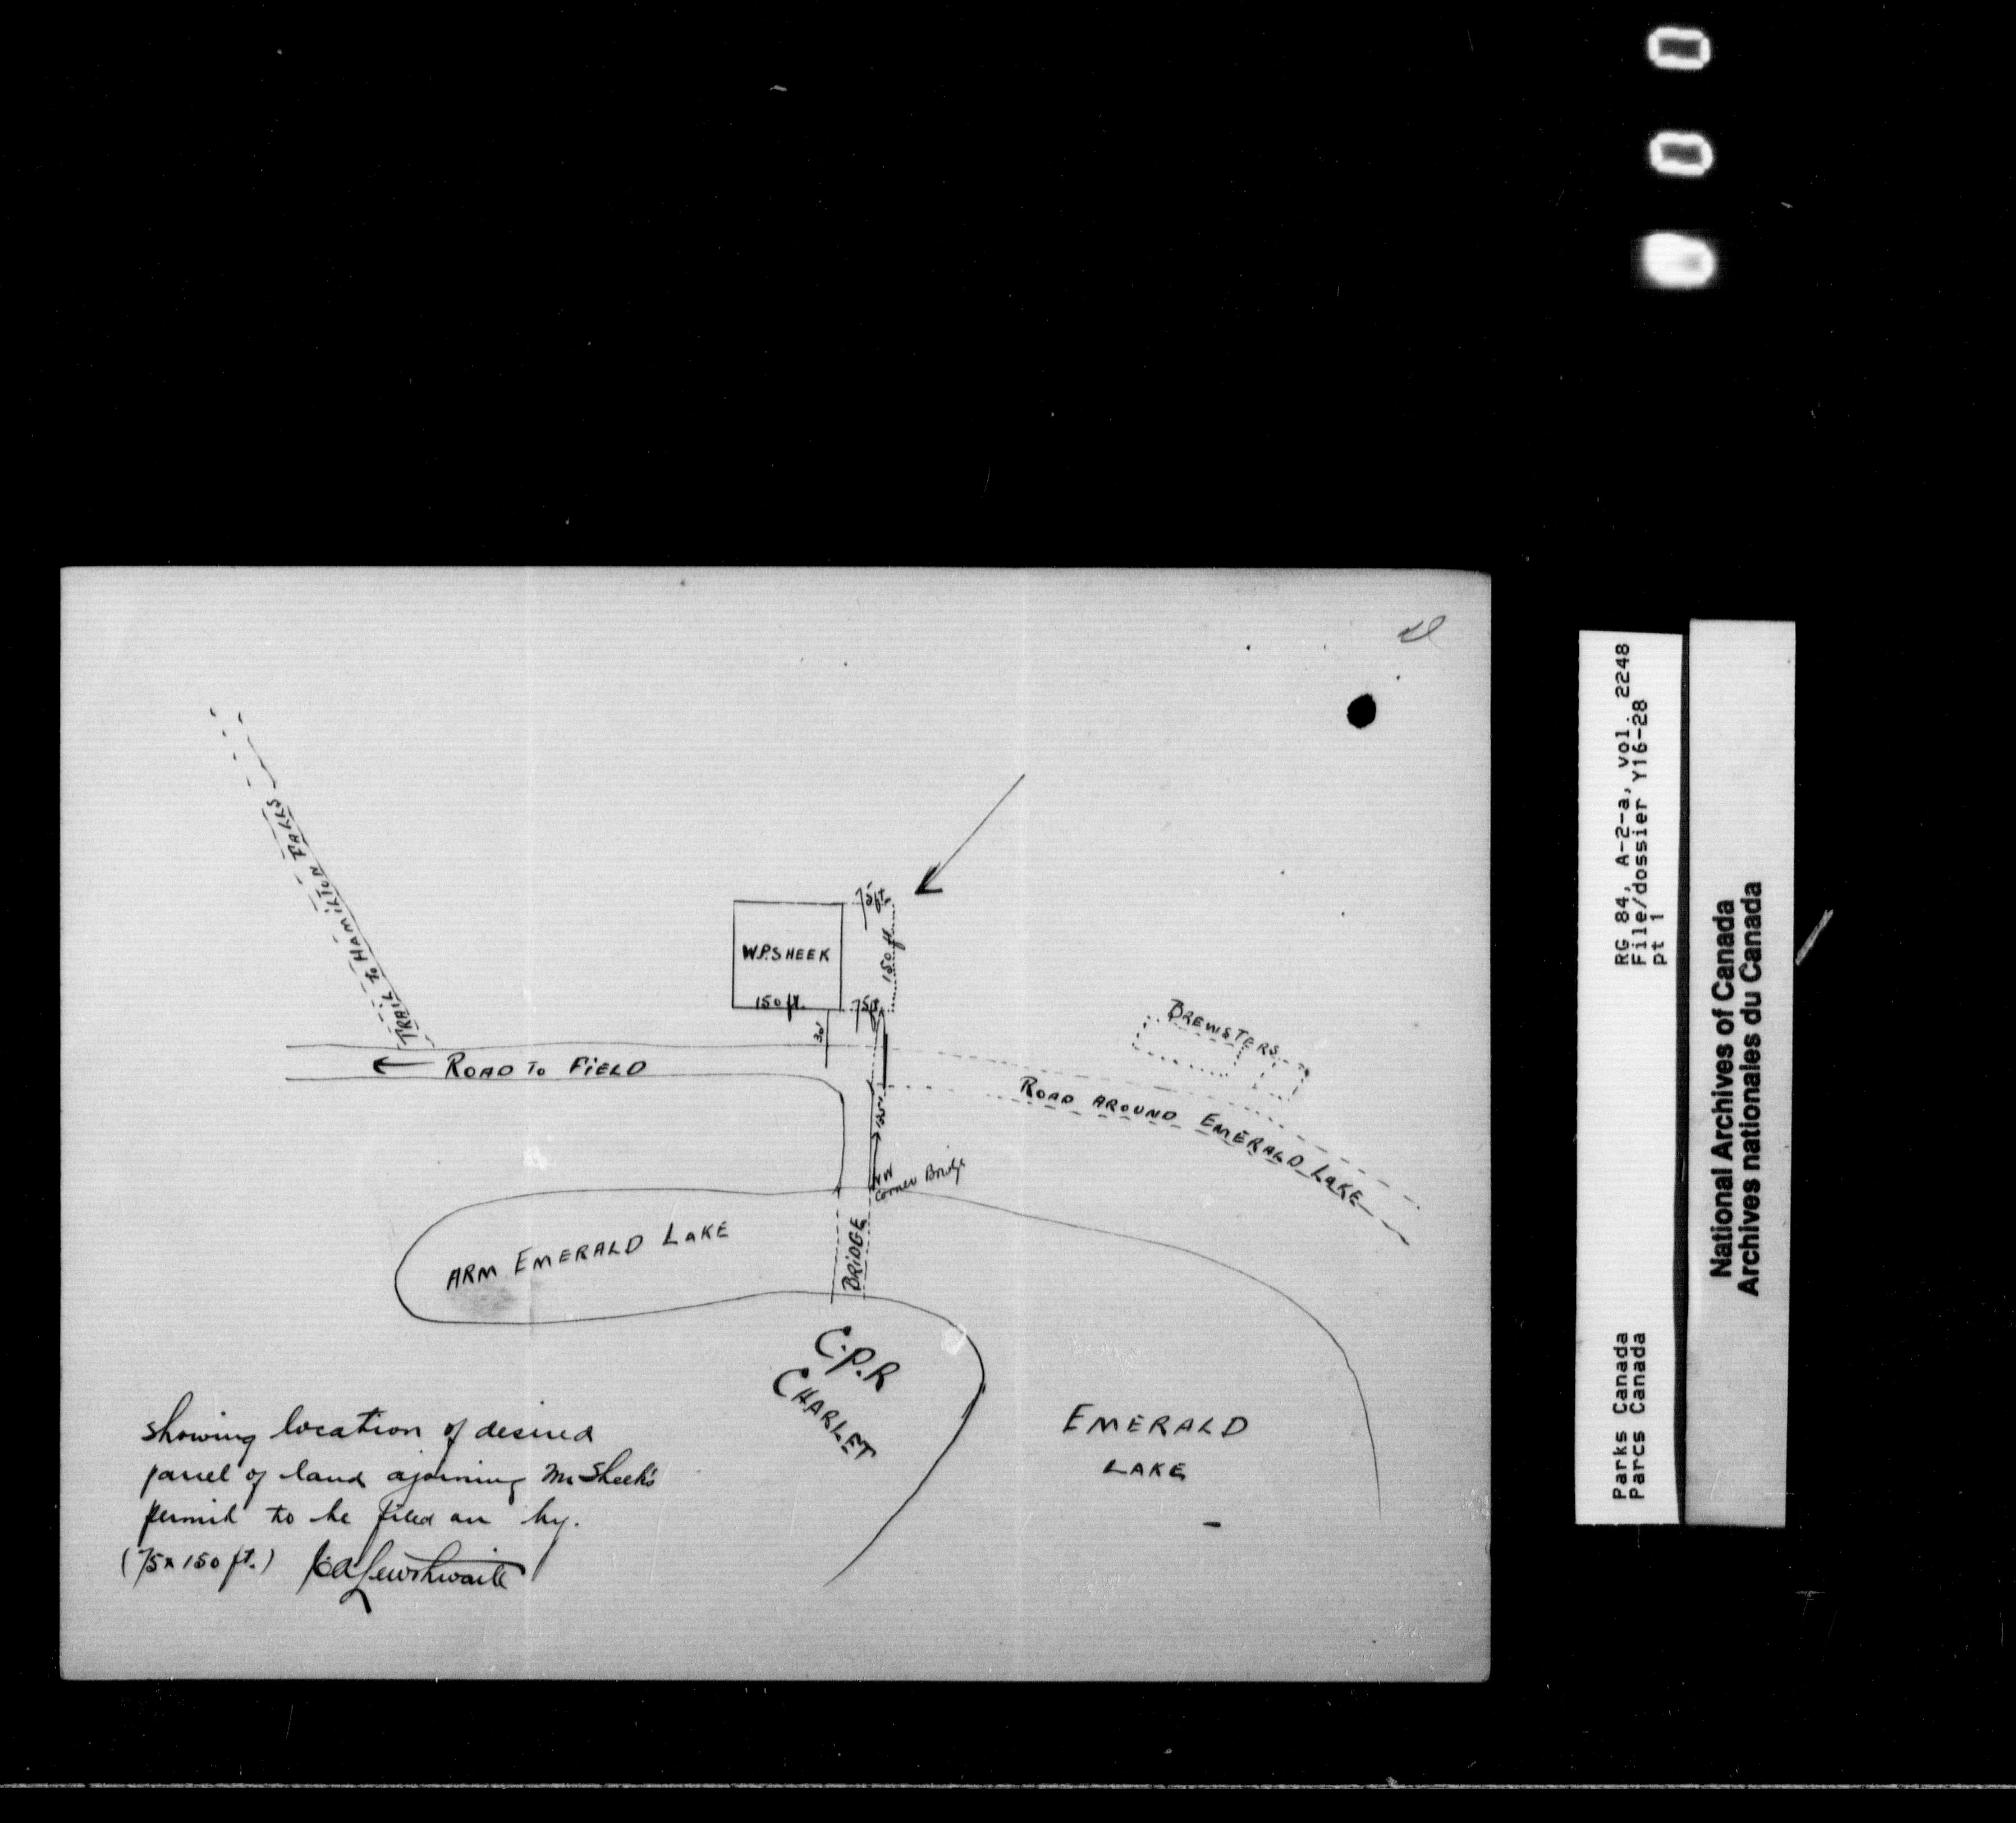 TRAIL To HAMILTON FALLS
W.P. SHEEK
150 ft.
75 ft
150 ft
75 ft
30'
ROAD To FiELD
BREWSTERS
ROAD AROUND EMERALD LAKE
NW
Corner Bridge
BRiDGE
ARM EMERALD LAKE
C.P.R
CHARLET
EMERALD
LAKE
showing location of desired
parcel of land ajoining Mr Sheek's
permit to be filed on by.
(75 x 150 ft.)
RG 84, A-2-a, vol. 2248
File/dossier Y16-28
pt 1
Parks Canada
Parcs Canada
National Archives of Canada
Archives nationales du Canada